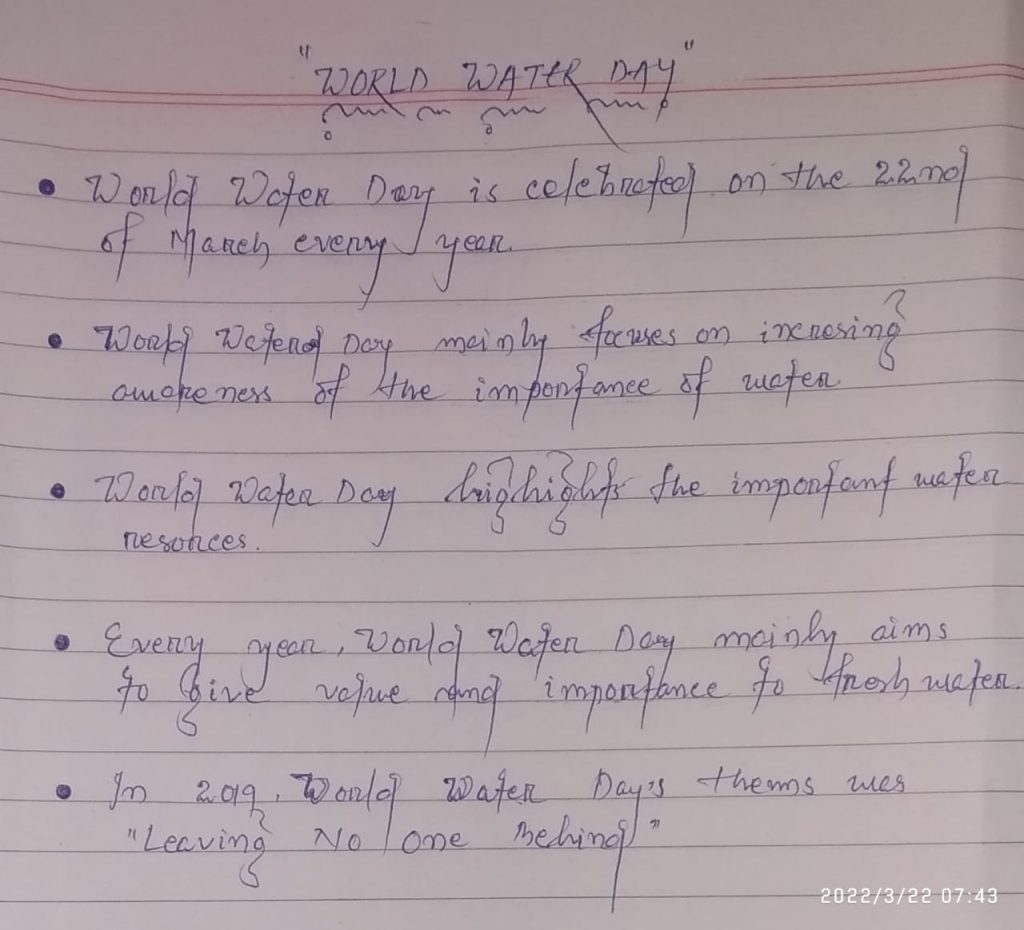 "WORLD WATER DAY"
• World Water Day is celebrated on the 22nd
of March every year.
• World Water Day mainly focuses on incresing
awareness of the importance of water.
• World Water Day highights the important water
resonces.
• Every year, World Water Day mainly aims
to give value and importance to fresh water.
• In 2019, World Water Day's thems was
"Leaving No one Behind"
2022/3/22 07:43